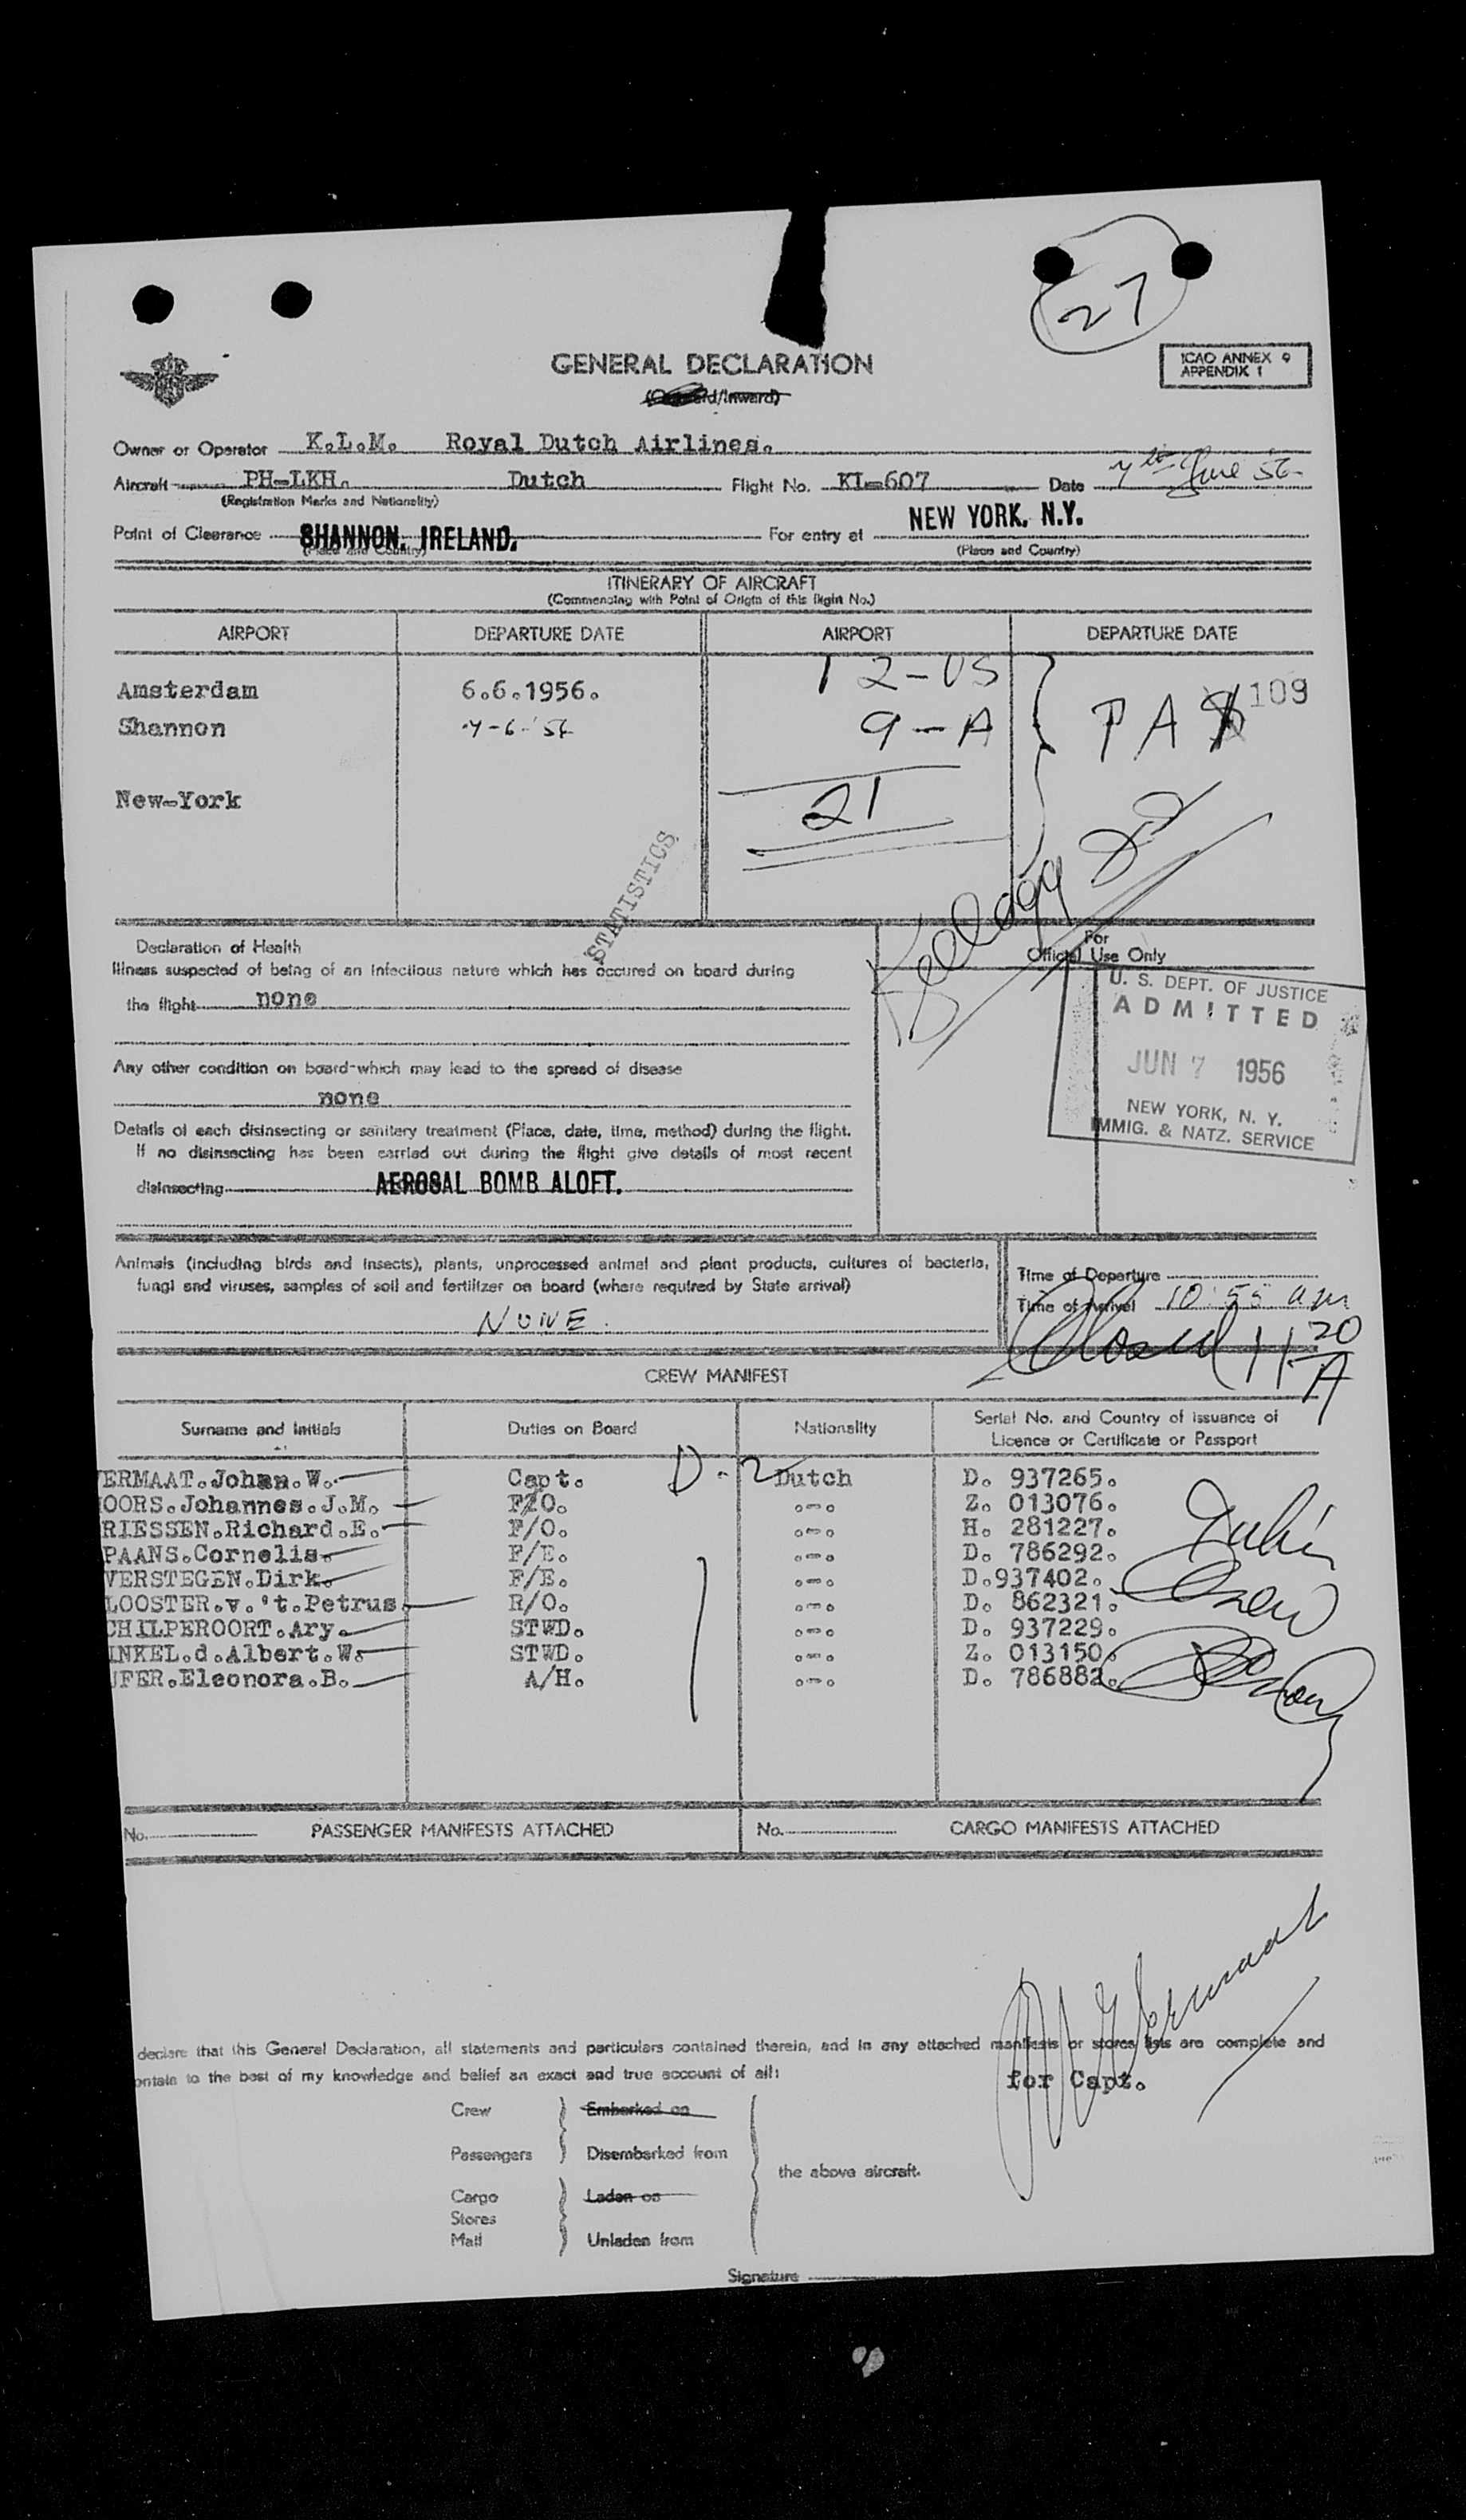 27
GENERAL DECLARATION
ICAO ANNEX 9
APPENDIX 1
/Inward)
Owner or Operator K.L.M. Royal Dutch Airlines.
Aircraft PH-LKH. Dutch Flight No. KL-607 Date 7th June 56
(Registration Marks and Nationality)
Point of Clearance SHANNON, IRELAND. For entry at NEW YORK, N.Y.
(Place and Country) (Place and Country)
ITINERARY OF AIRCRAFT
(Commencing with Point of Origin of this flight No.)
AIRPORT DEPARTURE DATE AIRPORT DEPARTURE DATE
Amsterdam 6.6.1956. 12-US 109
Shannon 7-6-56 9-A PA
New-York 21
STATISTICS
Kellogg
Declaration of Health
Illness suspected of being of an infectious nature which has occured on board during
the flight none
For
Official Use Only
U. S. DEPT. OF JUSTICE
ADMITTED
JUN 7 1956
NEW YORK, N. Y.
IMMIG. & NATZ. SERVICE
Any other condition on board which may lead to the spread of disease
none
Details of each disinsecting or sanitery treatment (Place, date, time, method) during the flight.
If no disinsecting has been carried out during the flight give details of most recent
disinsecting AEROSAL BOMB ALOFT.
Animals (including birds and insects), plants, unprocessed animal and plant products, cultures of bacteria,
fungi and viruses, samples of soil and fertilizer on board (where required by State arrival)
NONE.
Time of Departure
Time of Arrival 10:55 am
Closed 11 20 A
CREW MANIFEST
Surname and Initials Duties on Board Nationality Serial No. and Country of issuance of
Licence or Certificate or Passport
D-2
ERMAAT.Johan.W. Capt. Dutch D. 937265.
OORS.Johannes.J.M. F/O. o-o Z. 013076.
RIESSEN.Richard.E. F/O. o-o H. 281227.
PAANS.Cornelis. F/E. o-o D. 786292.
VERSTEGEN.Dirk. F/E. o-o D.937402.
LOOSTER.v.'t.Petrus. R/O. o-o D. 862321.
CHILPEROORT.Ary. STWD. o-o D. 937229.
INKEL.d.Albert.W. STWD. o-o Z. 013150.
UFER.Eleonora.B. A/H. o-o D. 786882.
No. PASSENGER MANIFESTS ATTACHED No. CARGO MANIFESTS ATTACHED
declare that this General Declaration, all statements and particulars contained therein, and in any attached manifests or stores lists are complete and
ontain to the best of my knowledge and belief an exact and true account of all:
for Capt.
Crew Embarked on
Passengers Disembarked from
the above aircraft.
Cargo Laden on
Stores
Mail Unladen from
Signature